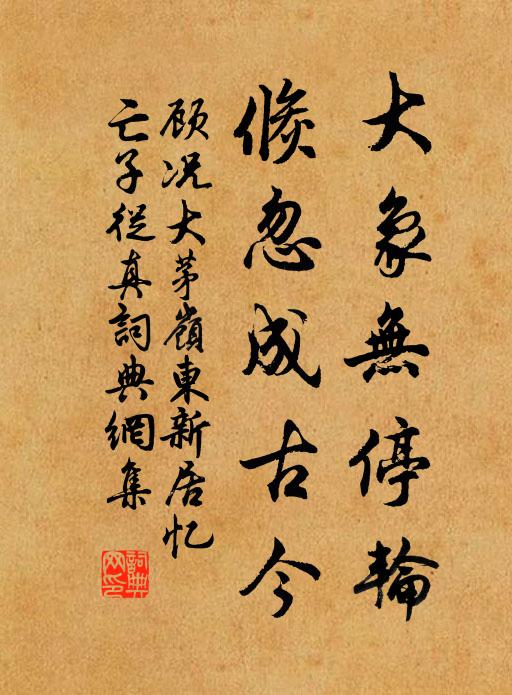 大象無停輪
倐忽成古今
顾况大茅嶺東新居忆
亡子從真詞典網集
詞典网印